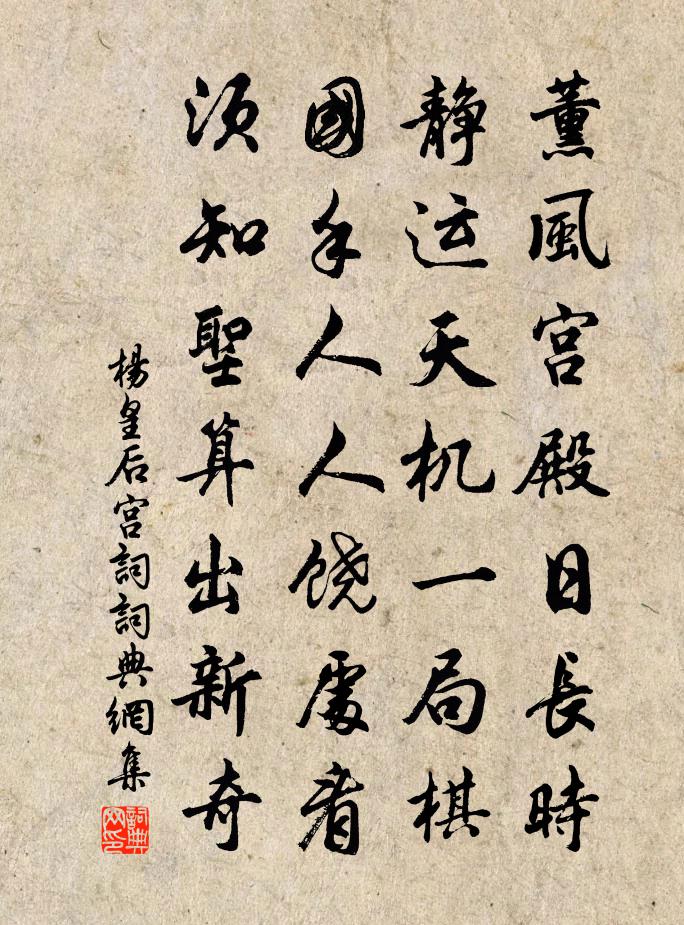 薰風宫殿日長時
静运天机一局棋
國手人人饶處着
须知聖算出新奇
楊皇后宫詞詞典網集
詞典网印